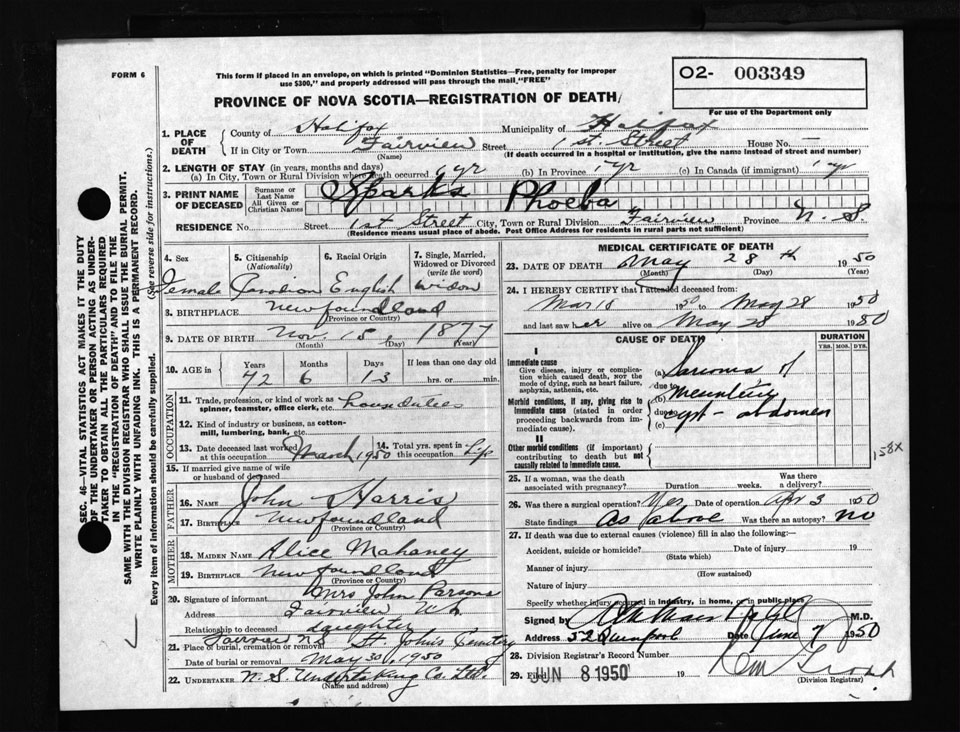 FORM 6
This form if placed in an envelope, on which is printed "Dominion Statistics—Free, penalty for improper
use $300," and properly addressed will pass through the mail, "FREE"
O2- 003349
For use of the Department only
PROVINCE OF NOVA SCOTIA—REGISTRATION OF DEATH
1. PLACE OF DEATH
County of Halifax Municipality of Halifax
If in City or Town Fairview Street 1st. Street House No. —
(Name) (If death occurred in a hospital or institution, give the name instead of street and number)
2. LENGTH OF STAY (in years, months and days)
(a) In City, Town or Rural Division where death occurred 1 yr (b) In Province 1 yr (c) In Canada (if immigrant) 1 yr
3. PRINT NAME OF DECEASED
Surname or Last Name Sparks
All Given or Christian Names Phoeba
RESIDENCE No. Street 1st Street City, Town or Rural Division Fairview Province N. S.
(Residence means usual place of abode. Post Office Address for residents in rural parts not sufficient)
4. Sex Female
5. Citizenship (Nationality) Canadian
6. Racial Origin English
7. Single, Married, Widowed or Divorced (write the word) Widow
8. BIRTHPLACE Newfoundland
(Province or Country)
9. DATE OF BIRTH Nov. 15 1877
(Month) (Day) (Year)
10. AGE in Years 72 Months 6 Days 13 If less than one day old hrs. or min.
OCCUPATION
11. Trade, profession or kind of work as spinner, teamster, office clerk, etc. house duties
12. Kind of industry or business, as cotton-mill, lumbering, bank, etc.
13. Date deceased last worked at this occupation March 1950
14. Total yrs. spent in this occupation Life
15. If married give name of wife or husband of deceased
FATHER
16. NAME John Harris
17. BIRTHPLACE Newfoundland
(Province or Country)
MOTHER
18. MAIDEN NAME Alice Mahaney
19. BIRTHPLACE Newfoundland
(Province or Country)
20. Signature of informant Mrs John Parsons
Address Fairview
Relationship to deceased daughter
21. Place of burial, cremation or removal Fairview NS St. John's Cemetry
Date of burial or removal May 1950
22. UNDERTAKER N. S. Undertaking Co. Ltd.
(Name and address)
MEDICAL CERTIFICATE OF DEATH
23. DATE OF DEATH May 28th 1950
(Month) (Day) (Year)
24. I HEREBY CERTIFY that I attended deceased from:
Mar 18 1950 to May 28 1950
and last saw her alive on May 28 1950
CAUSE OF DEATH
DURATION
YRS. MOS. DYS.
I
Immediate cause
Give disease, injury or complication which caused death, not the mode of dying, such as heart failure, asphyxia, asthenia, etc.
Morbid conditions, if any, giving rise to immediate cause (stated in order proceeding backwards from immediate cause).
II
Other morbid conditions (if important) contributing to death but not causally related to immediate cause.
(a) Sarcoma of
due to
(b) mesentery
due to
(c) cyst - abdomen
158X
25. If a woman, was the death associated with pregnancy? Duration weeks. Was there a delivery?
26. Was there a surgical operation? Yes Date of operation Apr 3 1950
State findings As above Was there an autopsy? No
27. If death was due to external causes (violence) fill in also the following:—
Accident, suicide or homicide? Date of injury 19
(State which)
Manner of injury
(How sustained)
Nature of injury
Specify whether injury occurred in industry, in home, or in public place
Signed by M.D.
Address 52 Date June 7 1950
28. Division Registrar's Record Number
29. Filed JUN 8 1950 19
(Division Registrar)
SEC. 46—VITAL STATISTICS ACT MAKES IT THE DUTY
OF THE UNDERTAKER OR PERSON ACTING AS UNDER-
TAKER TO OBTAIN ALL THE PARTICULARS REQUIRED
IN THE "REGISTRATION OF DEATH" AND TO FILE THE
SAME WITH THE DIVISION REGISTRAR WHO SHALL ISSUE THE BURIAL PERMIT.
WRITE PLAINLY WITH UNFADING INK. THIS IS A PERMANENT RECORD.
Every item of information should be carefully supplied. (See reverse side for instructions.)